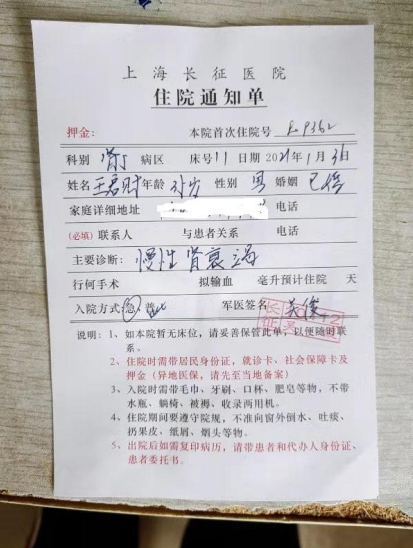 上海长征医院
住院通知单
押金: 本院首次住院号
科别 肾 病区 床号11日期2021年1月3日
姓名 王君财 年龄 性别 男 婚姻 已婚
家庭详细地址 电话
(必填)联系人 与患者关系 电话
主要诊断: 慢性肾衰竭
行何手术 拟输血 毫升预计住院 天
入院方式 急 普 军医签名
说明: 1、如本院暂无床位,请妥善保管此单,以便随时联
系。
2、住院时需带居民身份证,就诊卡、社会保障卡及
押金(异地医保,请先至当地备案)
3、入院时需带毛巾、牙刷、口杯、肥皂等物,不带
水瓶、躺椅、被褥、收录两用机。
4、住院期间要遵守院规,不准向窗外倒水、吐痰、
扔果皮、纸屑、烟头等物。
5、出院后如需复印病历,请带患者和代办人身份证、
患者委托书。